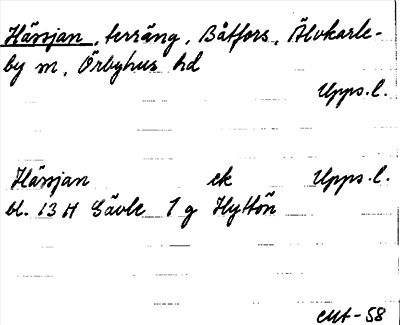 Hässjan, terräng, Båtfors, Älvkarle-
by sn, Örbyhus hd
Upps.l.
Hässjan ek Upps.l.
bl. 13 H Gävle 1 g Hyttön
-58